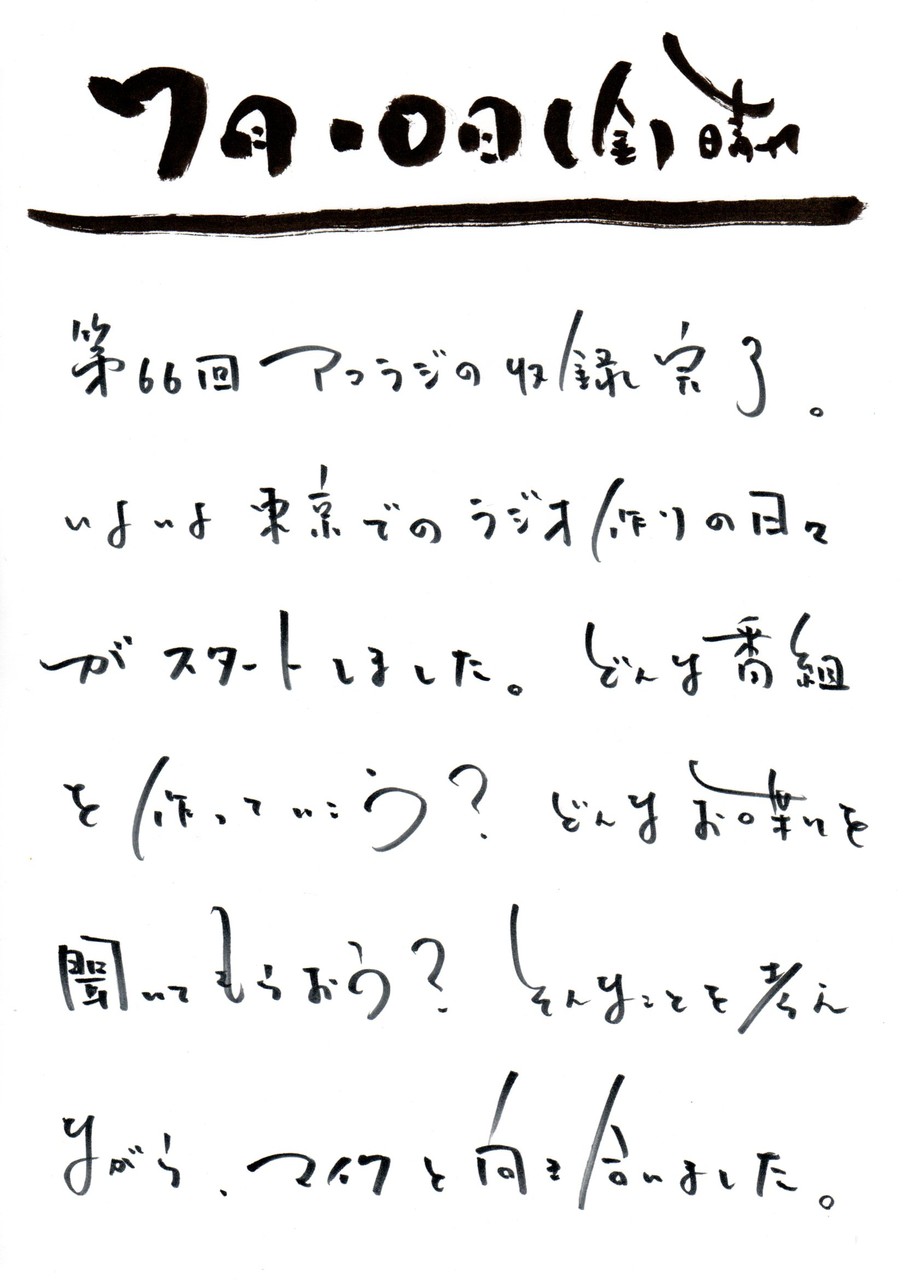 7月10日(金)晴れ
第66回アコラジの収録完了。
いよいよ東京でのラジオ作りの日々
がスタートしました。どんな番組
を作っていこう?どんなお喋りを
聞いてもらおう?そんなことを考え
ながら、マイクと向き合いました。